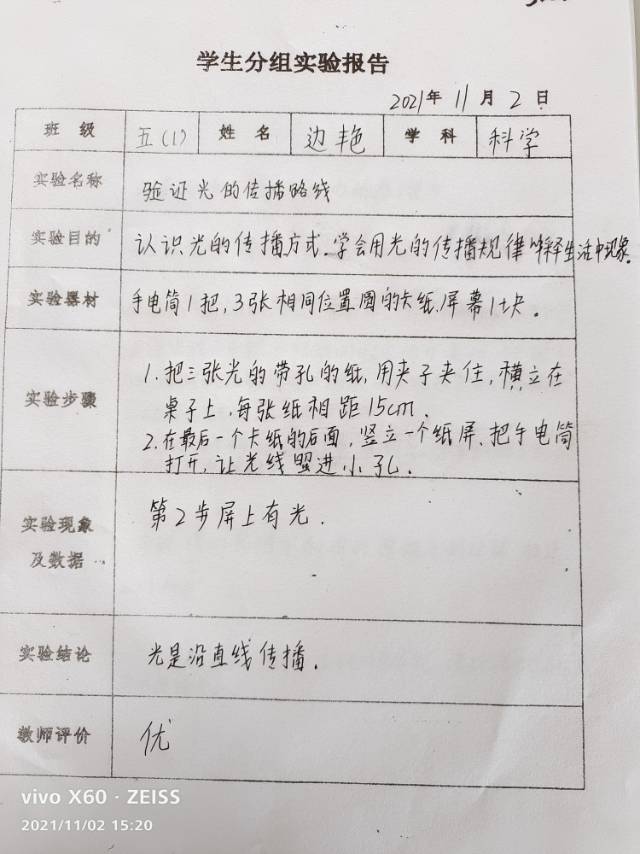 学生分组实验报告
2021年11月2日
班级 五(1) 姓名 边艳 学科 科学
实验名称 验证光的传播路线
实验目的 认识光的传播方式.学会用光的传播规律解释生活中现象.
实验器材 手电筒1把,3张相同位置圆的卡纸.屏幕1块。
实验步骤
1.把三张光的带孔的纸,用夹子夹住,横立在
桌子上,每张纸相距15cm.
2.在最后一个卡纸的后面,竖立一个纸屏.把手电筒
打开,让光线照进小孔.
实验现象
及数据
第2步屏上有光.
实验结论 光是沿直线传播.
教师评价 优
vivo X60 · ZEISS
2021/11/02 15:20